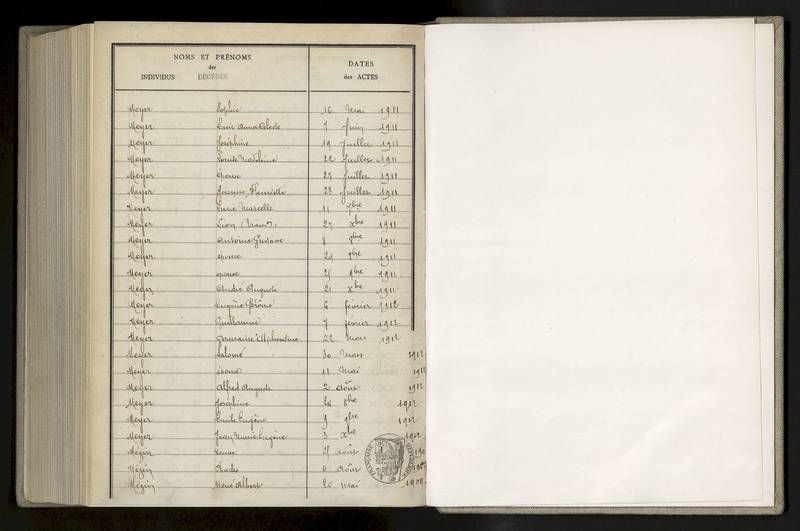 NOMS ET PRÉNOMS
des
INDIVIDUS DÉCÉDÉS
DATES
des ACTES
Meyer Sophie 16 Mai 1911
Meyer Lucie Anna Celeste 7 Juin 1911
Meyer Joséphine 19 Juillet 1911
Meyer Louise Madeleine 22 Juillet 1911
Meyer épouse 27 Juillet 1911
Meyer Jeanne Henriette 28 Juillet 1911
Meyer Lucie Marcelle 11 7bre 1911
Meyer Léon 27 Xbre 1911
Meyer Antoine Gustave 8 8bre 1911
Meyer épouse 29 8bre 1911
Meyer épouse 25 9bre 1911
Meyer André Auguste 21 Xbre 1911
Meyer Eugène Jérôme 6 février 1912
Meyer Guillaume 7 février 1912
Meyer Germaine Alphonsine 22 Mars 1912
Meyer Salomé 30 Mars 1912
Meyer épouse 11 Mai 1912
Meyer Alfred Auguste 2 Août 1912
Meyer Joséphine 28 8bre 1912
Meyer Emile Eugène 9 9bre 1912
Meyer Jean Marie Eugène 3 Xbre 1912
Mézin Veuve 25 Août
Mézin Charles Août
Mézin René Albert 20 Mai